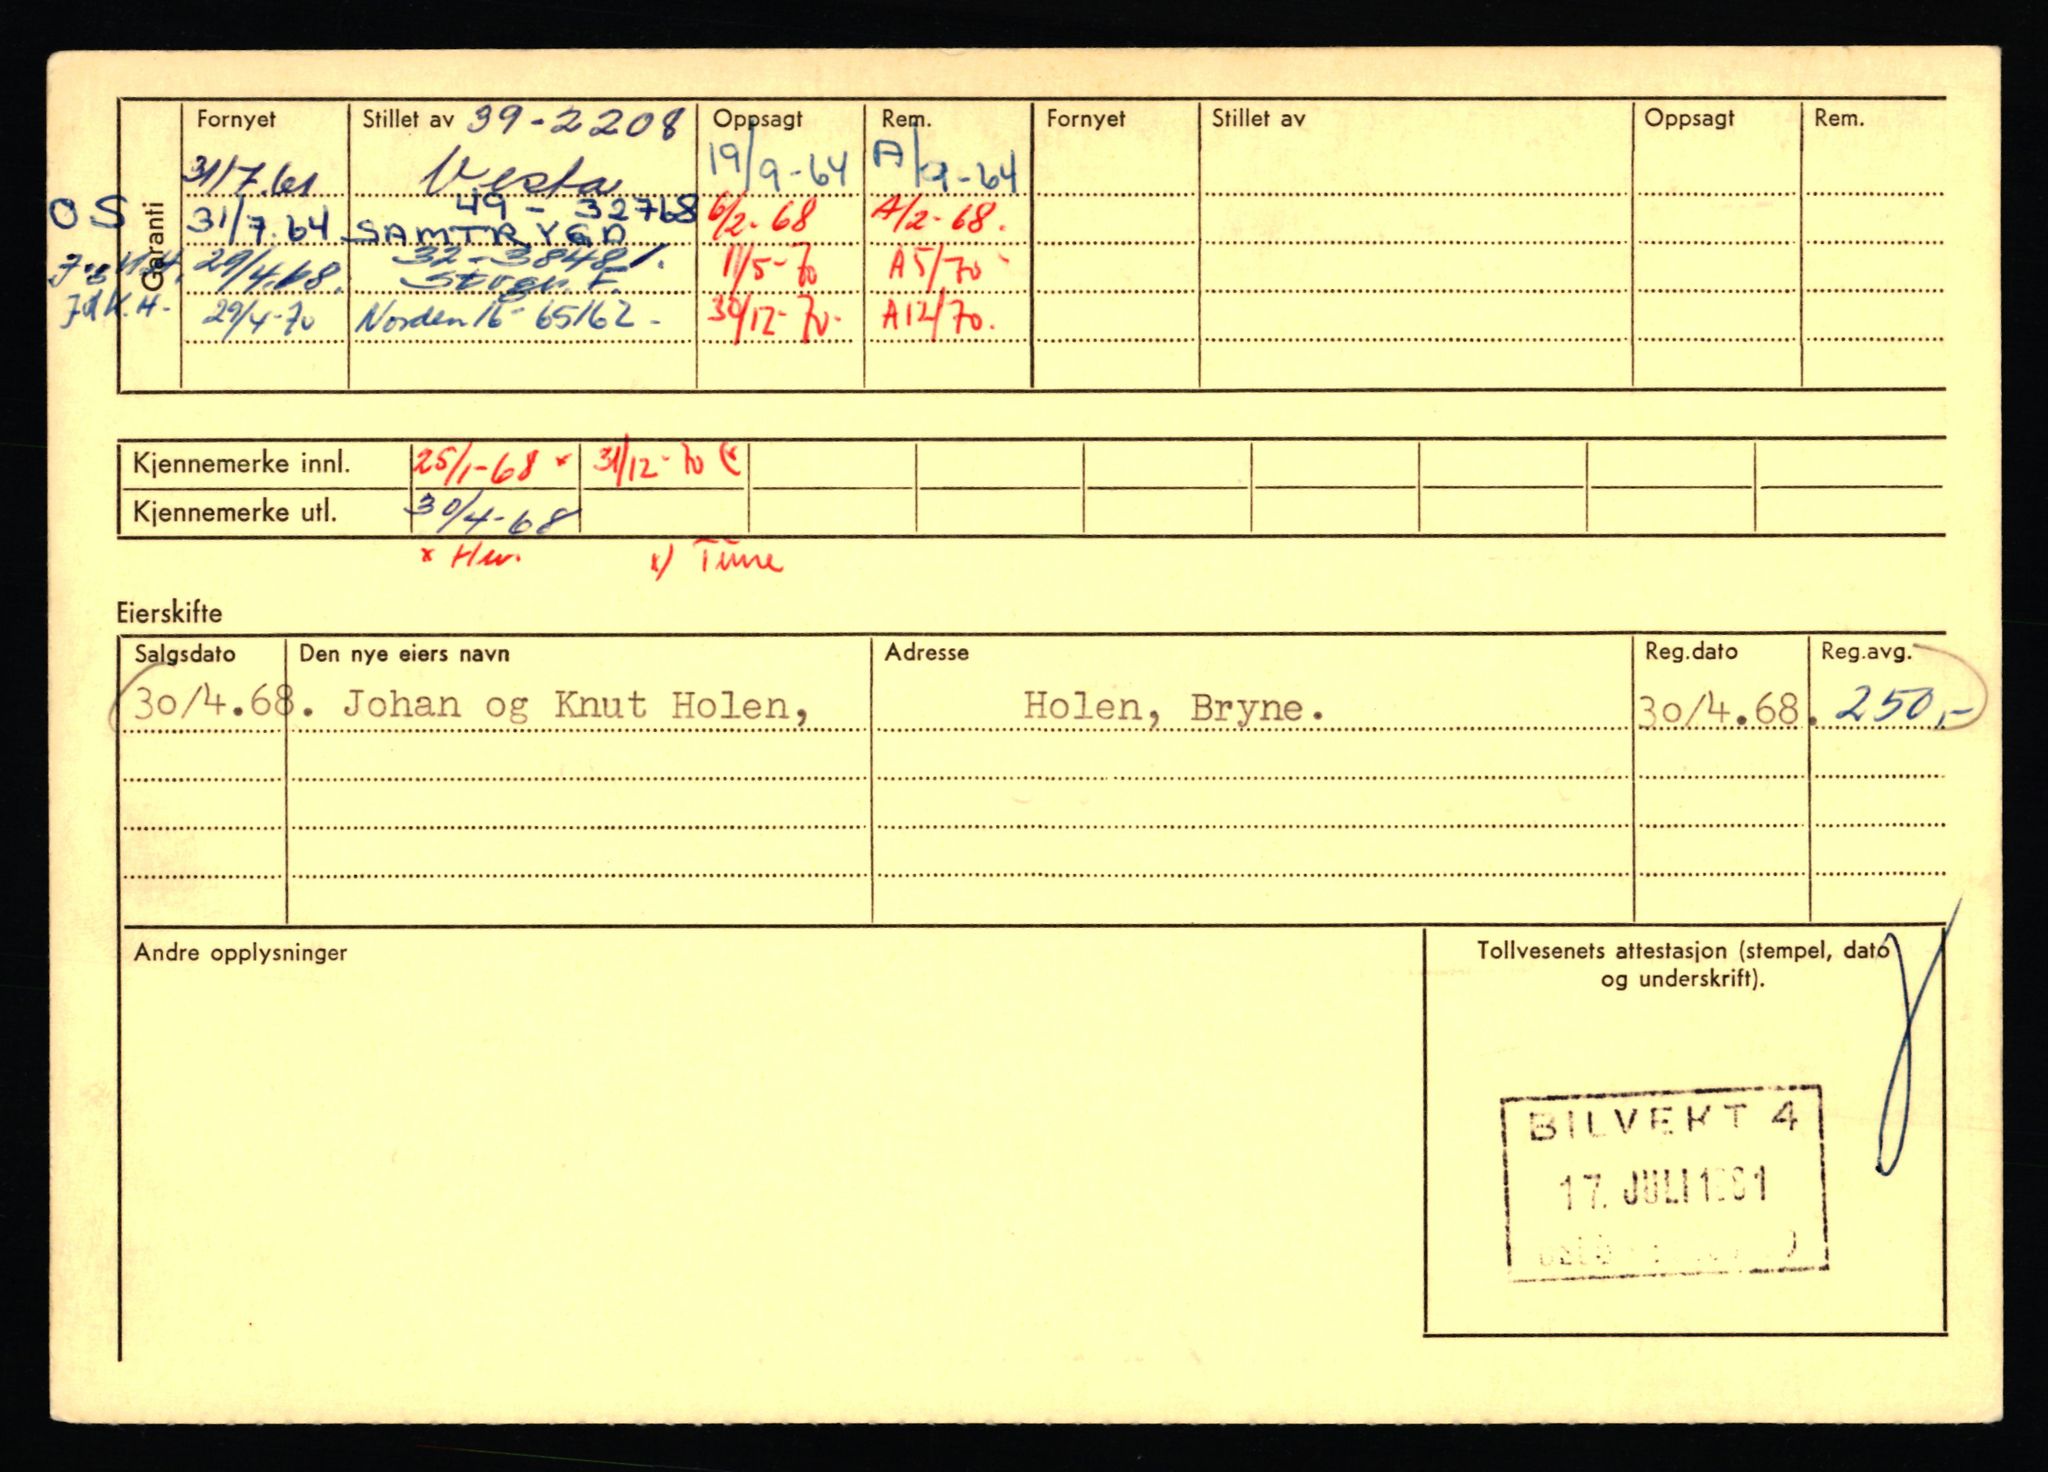 Garanti
Fornyet Stillet av 39-2208 Oppsagt Rem. Fornyet Stillet av Oppsagt Rem.
31/7.61 Vesta 19/9-64 A/9-64
OS 31/7.64 49-32768 SAMTRYGD 6/2-68 A/2-68.
29/4.68. 32-38481. 11/5-70 A5/70
29/4-70 Norden 16-65162- 30/12-70- A12/70.
Kjennemerke innl. 25/1-68 x 31/12-70 (x
Kjennemerke utl. 30/4-68
x Hw. x) Time
Eierskifte
Salgsdato Den nye eiers navn Adresse Reg.dato Reg.avg.
30/4.68. Johan og Knut Holen, Holen, Bryne. 30/4.68. 250,-
Andre opplysninger
Tollvesenets attestasjon (stempel, dato
og underskrift).
BILVEKT 4
17. JULI 1961